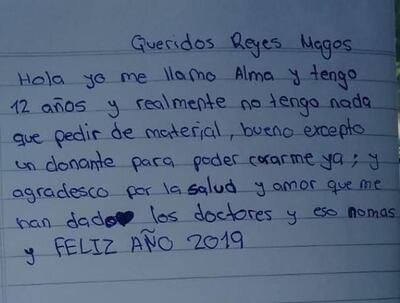 Queridos Reyes Magos
Hola yo me llamo Alma y tengo
12 años y realmente no tengo nada
que pedir de material, bueno excepto
un donante para poder curarme ya; y
agradesco por la salud y amor que me
han dado los doctores y eso nomas
y FELIZ AÑO 2019